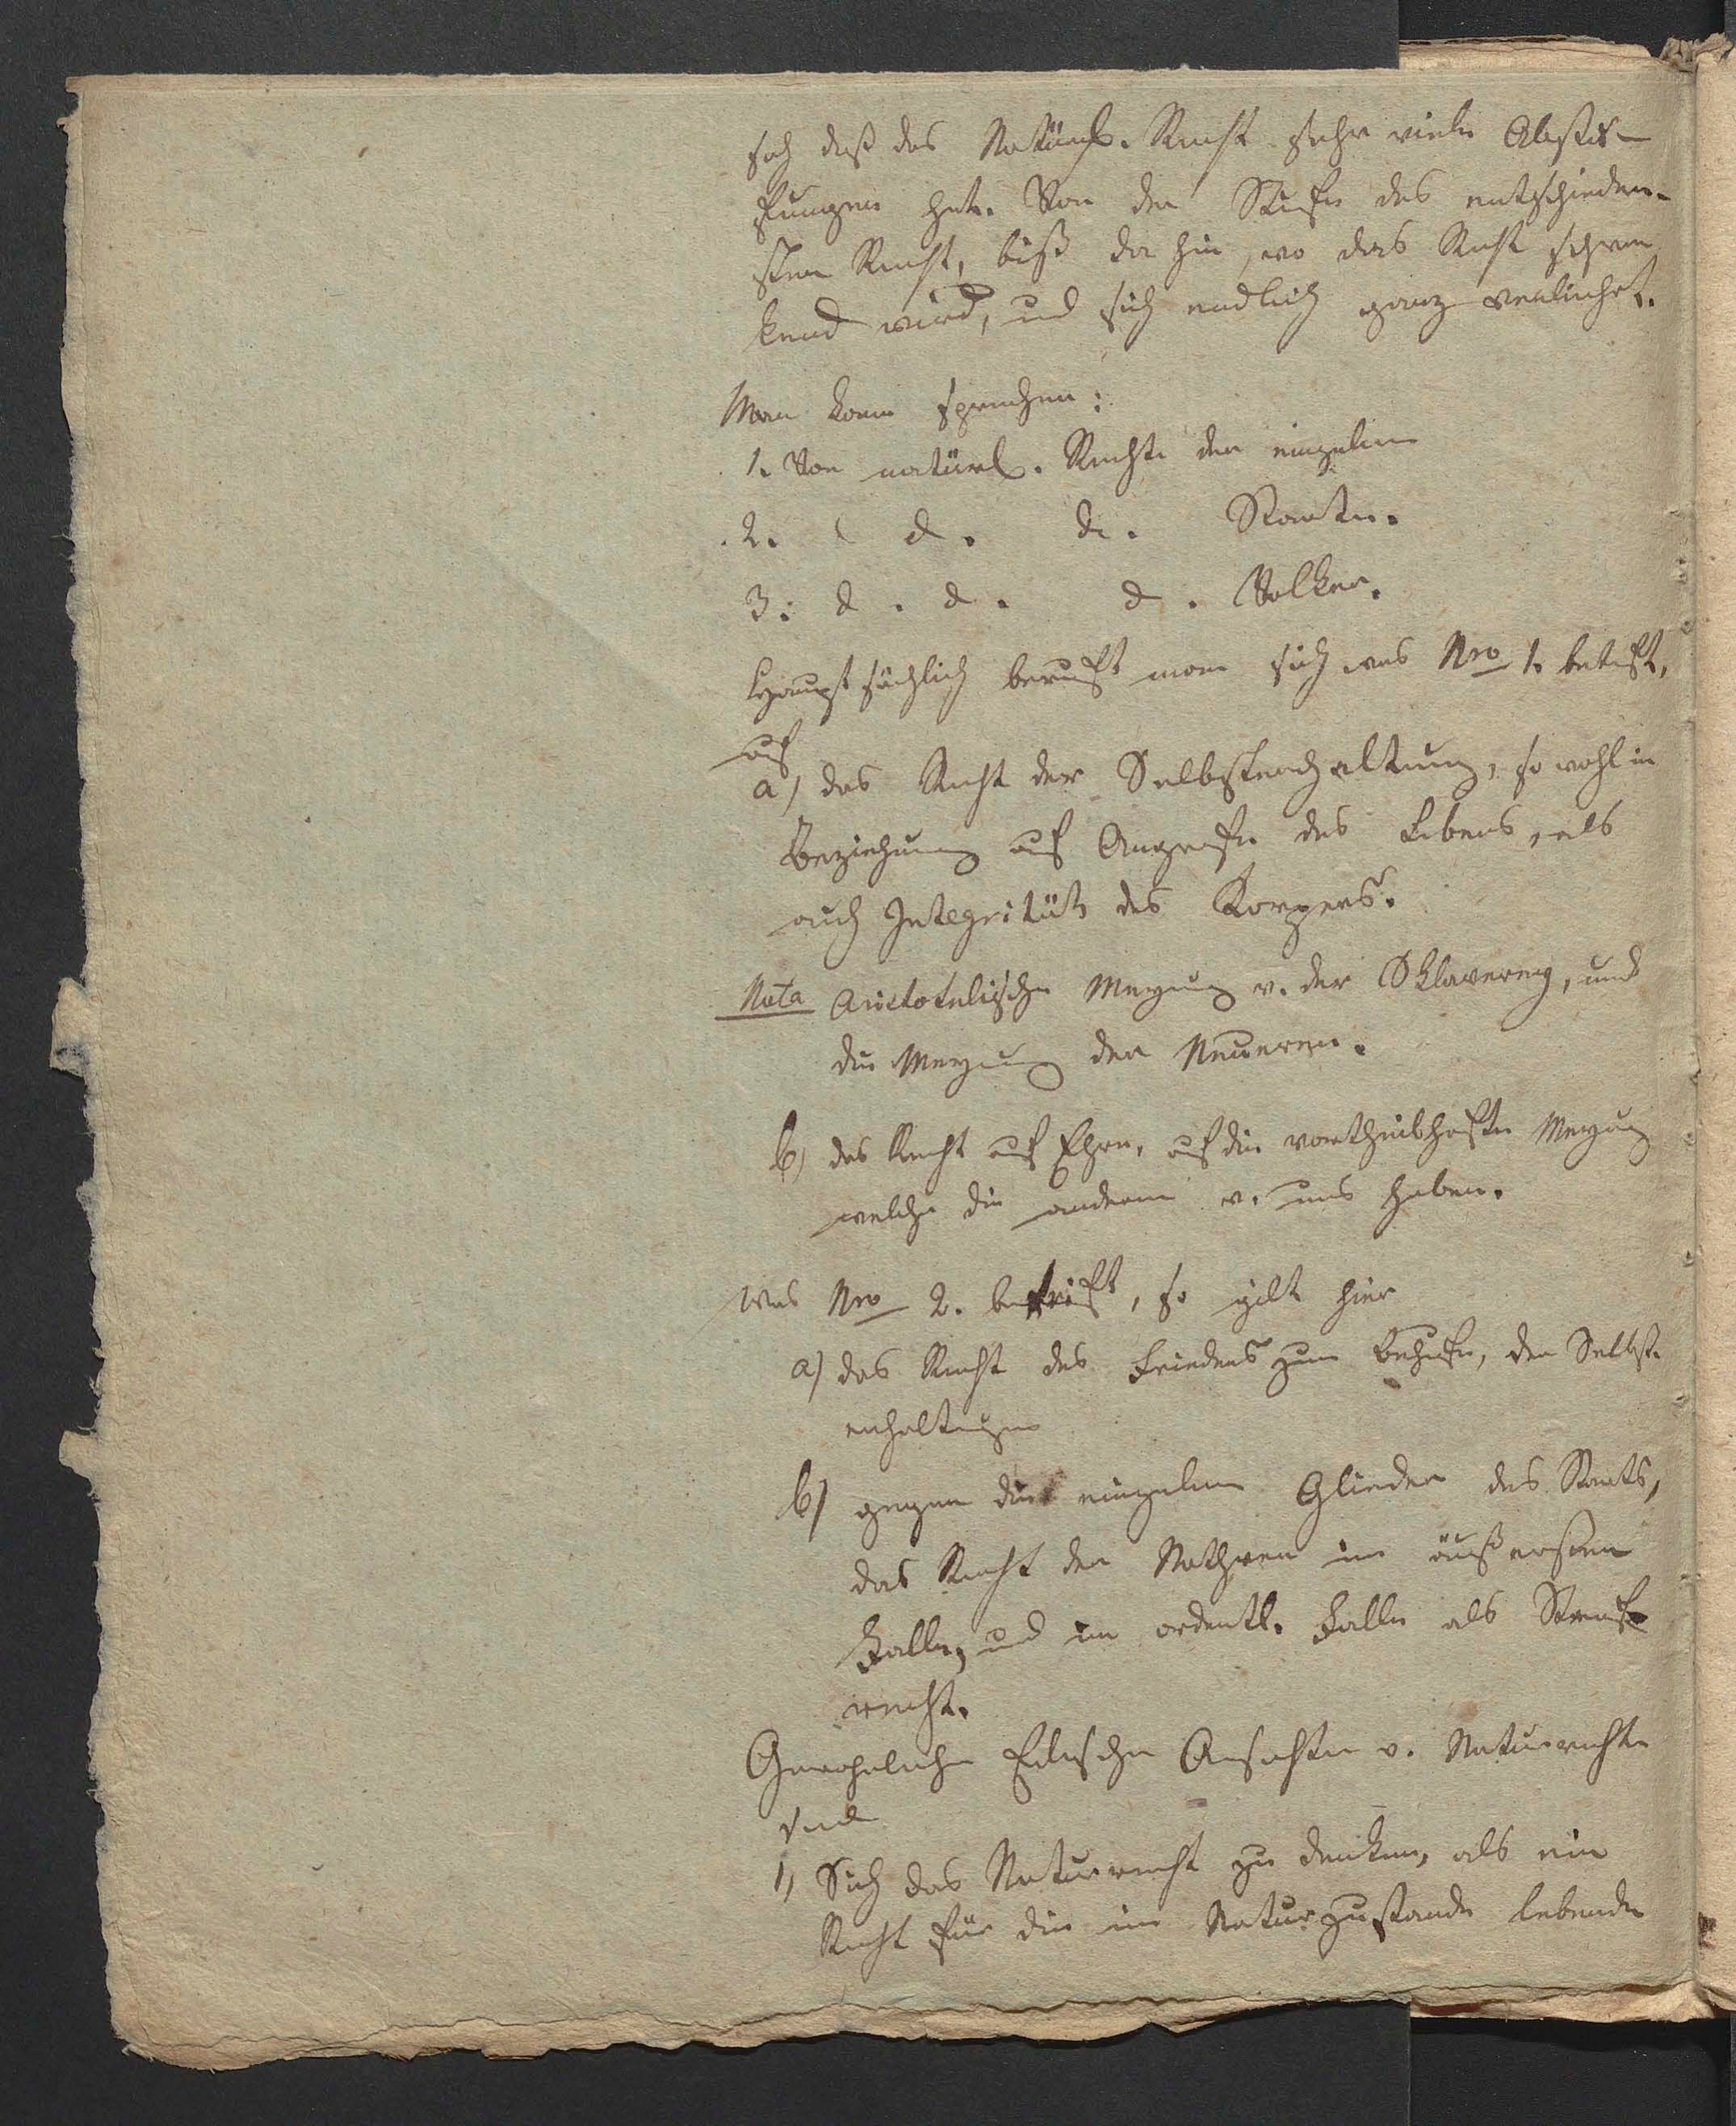 sich daß das Natürl. Recht sehr viele Abstu-
fungen hat. Von der Stufe des entschieden-
sten Recht, biß da hin, wo das Recht schwan
kend wird, und sich endlich ganz verliehrt.
Man kann sprechen:
1. Von natürl. Rechte der einzelnen
2. d. d. Staaten.
3. d. d. d. Volker.
Hauptsächlich beruft man sich was Nro 1. betrift,
auf
a) das Recht der Selbsterhaltung, so wohl in
Beziehung auf Angriffe des Lebens, als
auch Integrität des Korpers.
Nota Aristotelische Meyung v. der Sklaverey, und
die Meyung der Neueren.
b) das Recht auf Ehre, auf die vortheilhafte Meyung
welche die anderen v. uns haben.
Was Nro 2. betrift, so gilt hier
a) das Recht des Friedens zum Behufe, der Selbst-
erhaltung
b) gegen die einzelnen Glieder des Staats,
das Recht der Nothwer im äußersten
Falle, und im ordentl. Falle als Straf
recht.
Gewohnliche Ansichten v. Naturrechte
sind
1) Sich das Naturrecht zu denken, als ein
Recht für die im Naturzustande lebende